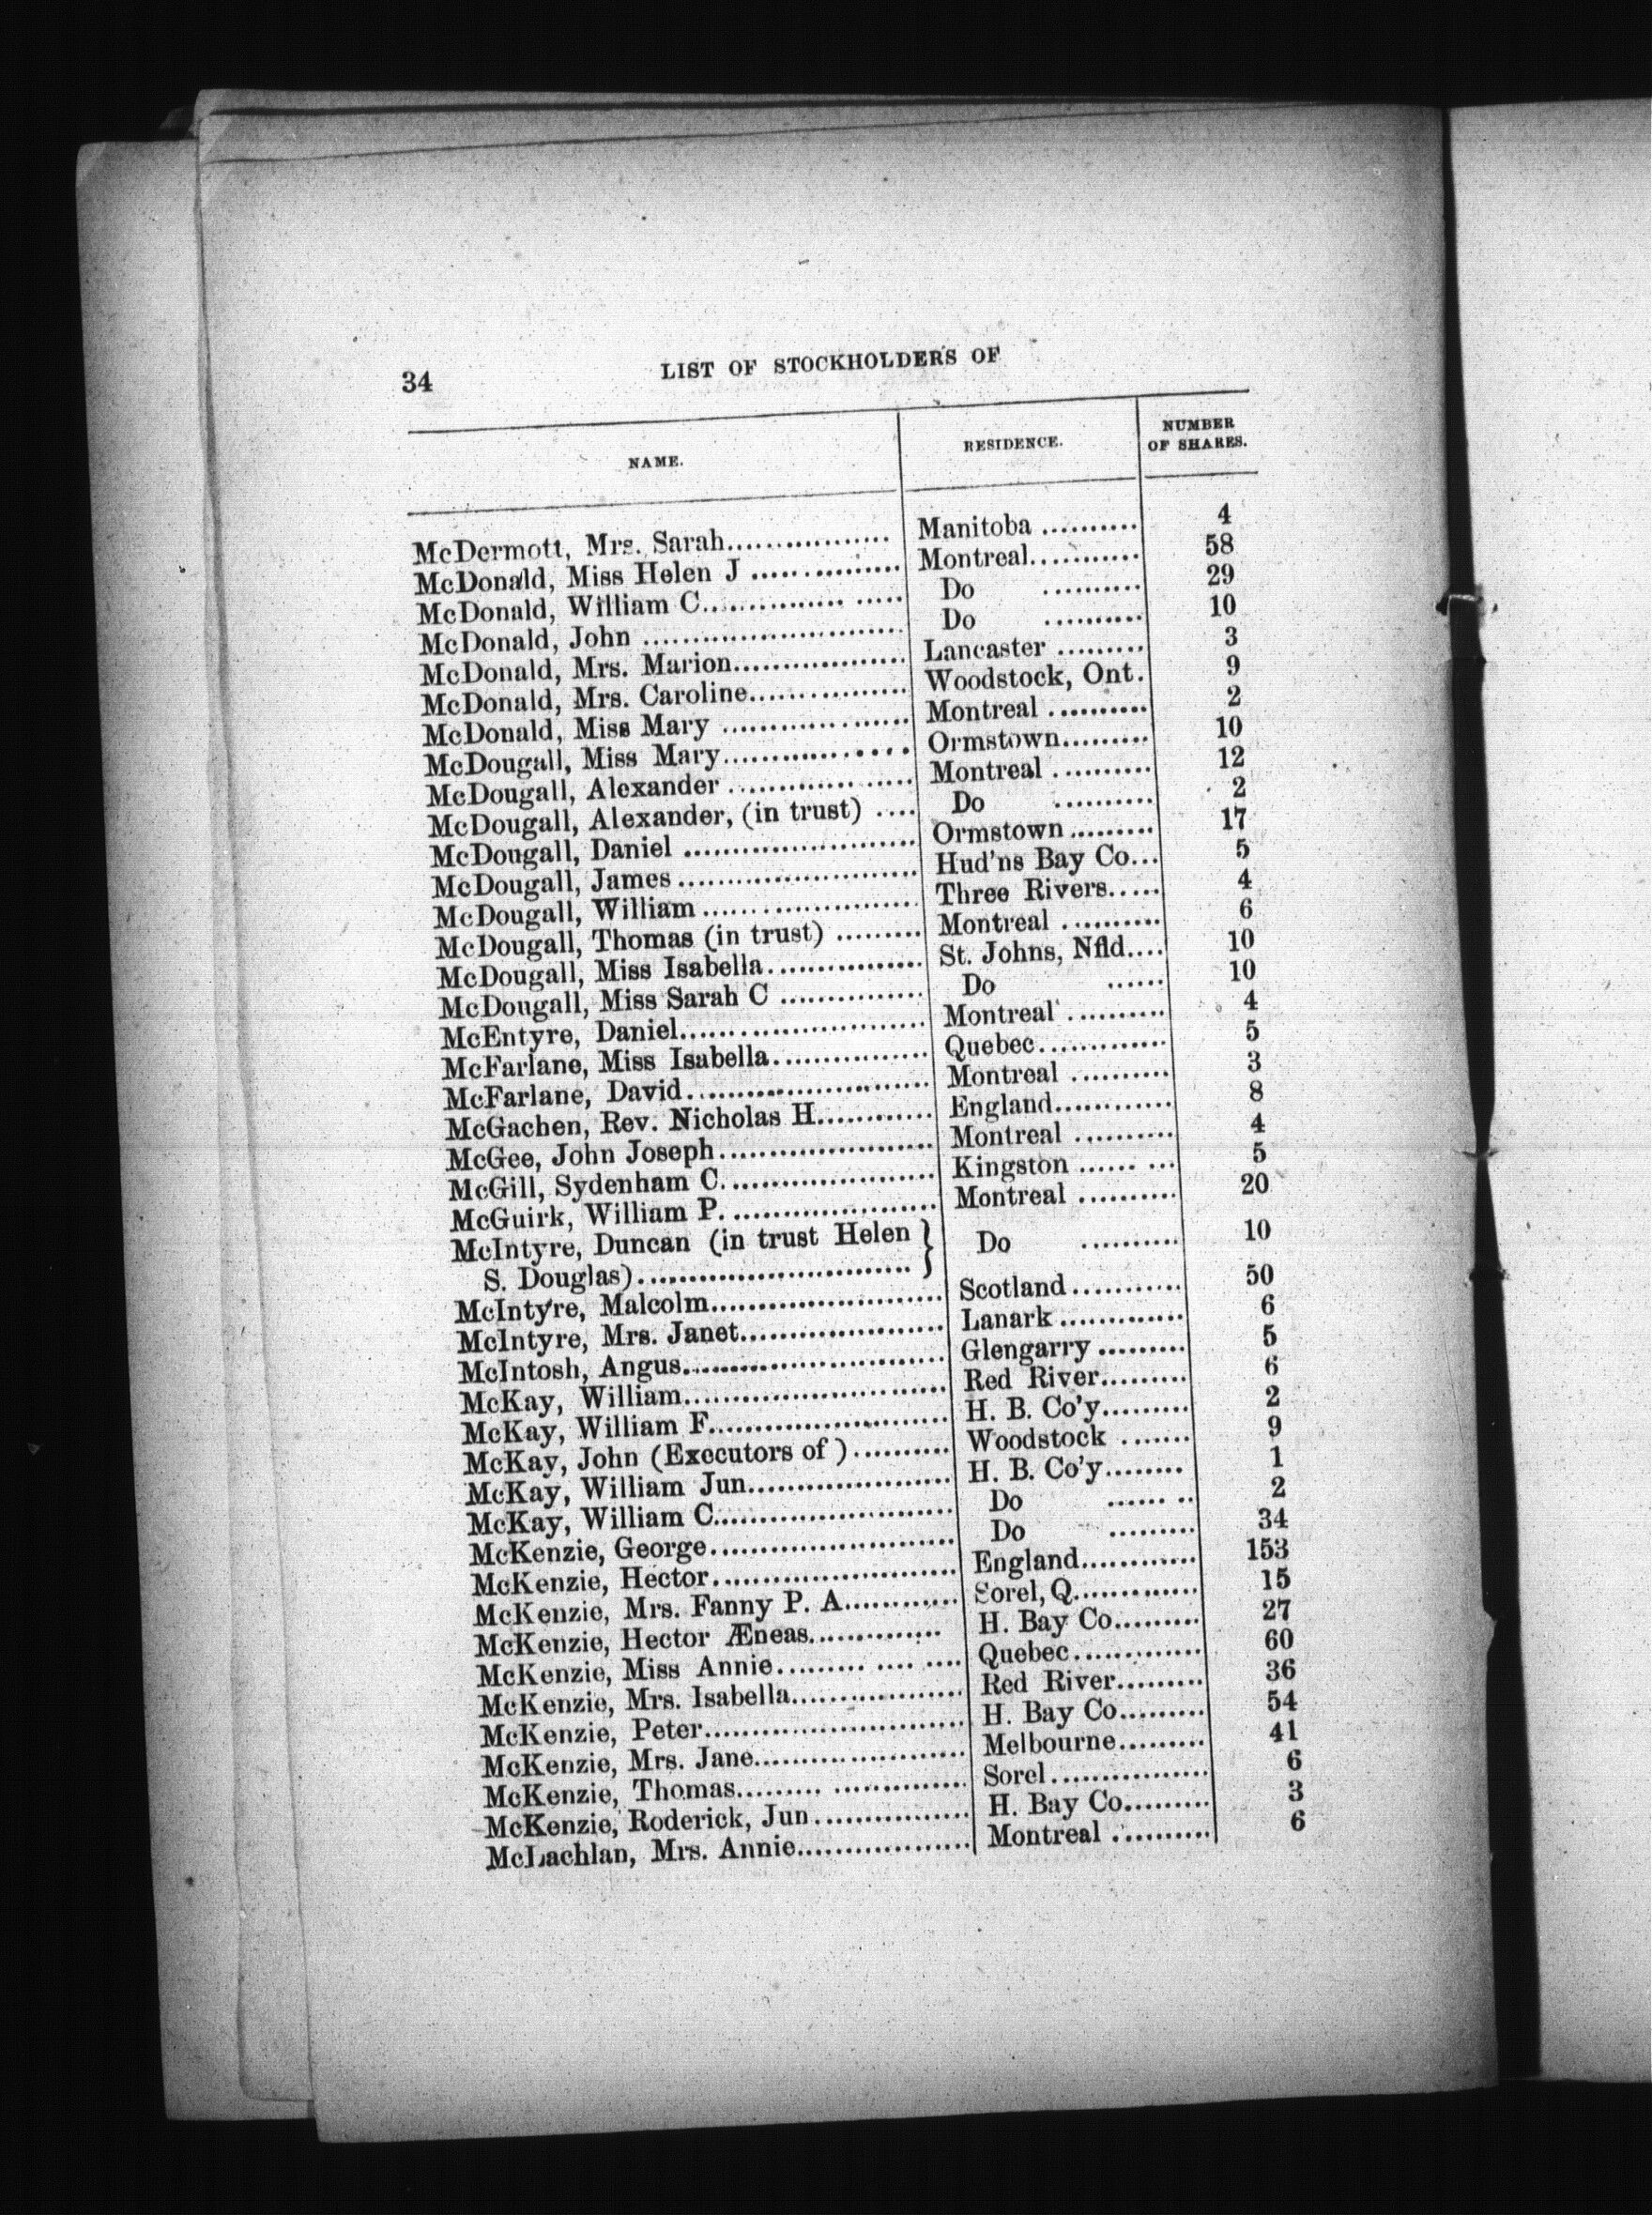 34 LIST OF STOCKHOLDERS OF
NAME. RESIDENCE. NUMBER OF SHARES.
McDermott, Mrs. Sarah................. Manitoba .......... 4
McDonald, Miss Helen J ............... Montreal........... 58
McDonald, William C................... Do .......... 29
McDonald, John .......................... Do .......... 10
McDonald, Mrs. Marion................. Lancaster ......... 3
McDonald, Mrs. Caroline............... Woodstock, Ont. 9
McDonald, Miss Mary .................. Montreal .......... 2
McDougall, Miss Mary.................. Ormstown......... 10
McDougall, Alexander .................. Montreal .......... 12
McDougall, Alexander, (in trust) .... Do .......... 2
McDougall, Daniel ....................... Ormstown ......... 17
McDougall, James ........................ Hud'ns Bay Co... 5
McDougall, William ...................... Three Rivers..... 4
McDougall, Thomas (in trust) ......... Montreal .......... 6
McDougall, Miss Isabella............... St. Johns, Nfld.... 10
McDougall, Miss Sarah C .............. Do ...... 10
McEntyre, Daniel........................ Montreal .......... 4
McFarlane, Miss Isabella............... Quebec............. 5
McFarlane, David........................ Montreal .......... 3
McGachen, Rev. Nicholas H............ England............ 8
McGee, John Joseph..................... Montreal .......... 4
McGill, Sydenham C..................... Kingston ...... ... 5
McGuirk, William P. ..................... Montreal .......... 20
McIntyre, Duncan (in trust Helen } Do .......... 10
S. Douglas)...........................
McIntyre, Malcolm....................... Scotland ........... 50
McIntyre, Mrs. Janet.................... Lanark ............. 6
McIntosh, Angus.......................... Glengarry ......... 5
McKay, William.......................... Red River......... 6
McKay, William F........................ H. B. Co'y......... 2
McKay, John (Executors of ).......... Woodstock ....... 9
McKay, William Jun..................... H. B. Co'y........ 1
McKay, William C........................ Do ...... .. 2
McKenzie, George........................ Do ......... 34
McKenzie, Hector........................ England............ 153
McKenzie, Mrs. Fanny P. A............ Sorel, Q............. 15
McKenzie, Hector Æneas.............. H. Bay Co......... 27
McKenzie, Miss Annie......... .... .... Quebec............. 60
McKenzie, Mrs. Isabella................. Red River......... 36
McKenzie, Peter.......................... H. Bay Co......... 54
McKenzie, Mrs. Jane..................... Melbourne......... 41
McKenzie, Thomas......... .............. Sorel................ 6
McKenzie, Roderick, Jun................ H. Bay Co......... 3
McLachlan, Mrs. Annie.................. Montreal .......... 6